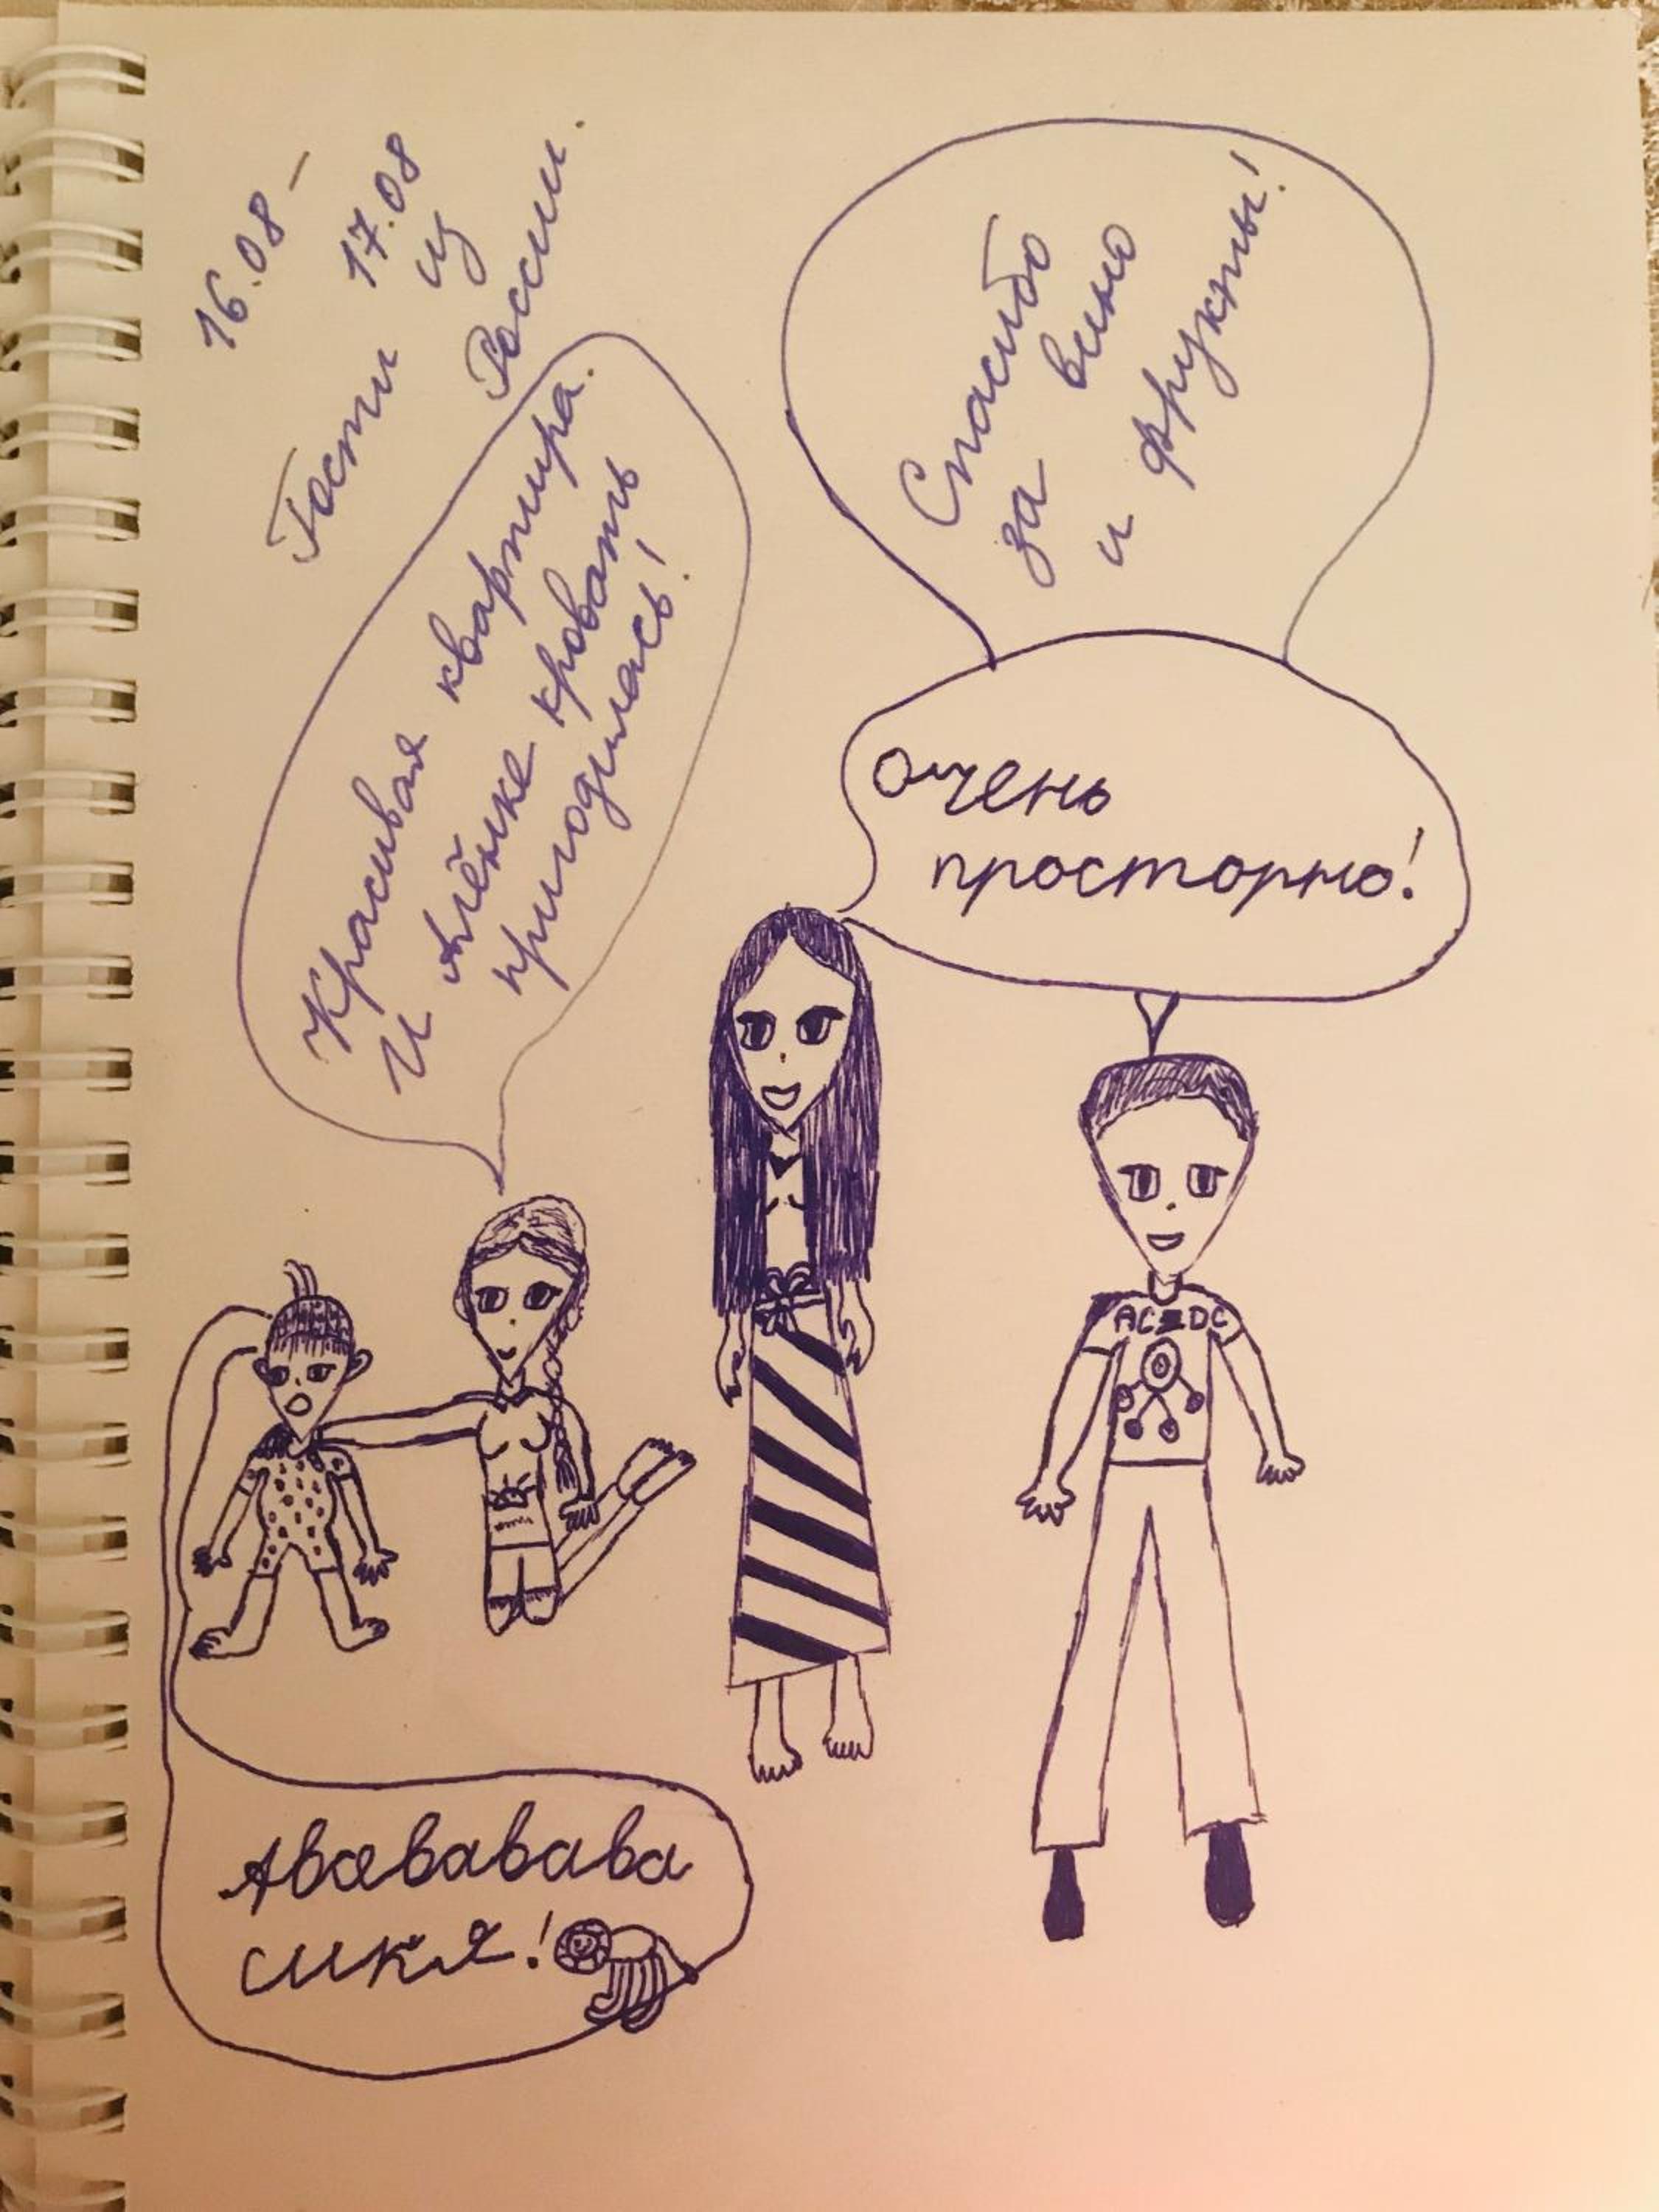 16.08 –
17.08
Гости из
России.
Красивая квартира.
И Алёнке кровать
пригодилась!
Спасибо
за вино
и фрукты!
Очень
просторно!
AC⚡DC
Авававава
сикя!